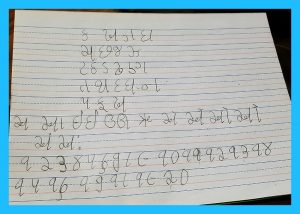 ક ખ ગ ઘ
ચ છ જ ઝ
ટ ઠ ડ ઢ ણ
ત થ દ ધ ન
પ ફ
અ આ ઇ ઈ ઉ ઊ ઋ એ ઐ ઓ ઔ
અં અઃ
૧ ૨ ૩ ૪ ૫ ૬ ૭ ૮ ૯ ૧૦ ૧૧ ૧૨ ૧૩ ૧૪
૧૫ ૧૬ ૧૭ ૧૮ ૧૯ ૨૦